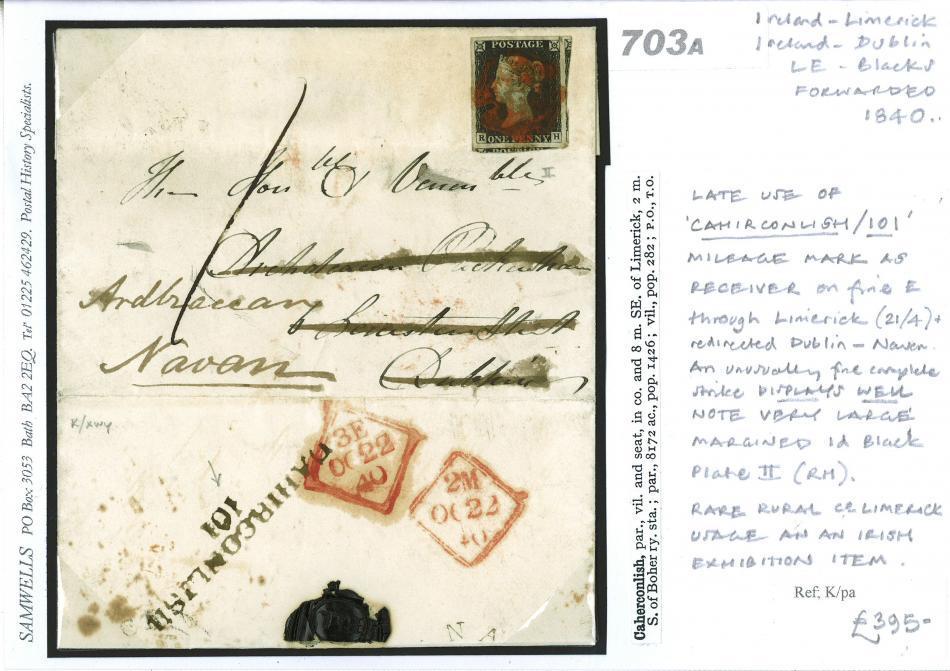 SAMWELLS PO Box 3053 Bath BA2 2EQ. Tel 01225 462429. Postal History Specialists.
POSTAGE
R ONE PENNY H
The Hon ble & Venera ble
II
Archdeacon Pakenham
Ardbraccan
6 Leinster Street
Navan
Dublin
1
K/xwy
3E
OC 22
40
2M
OC 22
40
CAHIRCONLISH
101
N A
703A
Ireland - Limerick
Ireland - Dublin
LE - Blacks
FORWARDED
1840..
Caherconlish, par., vil. and seat, in co. and 8 m. SE. of Limerick, 2 m.
S. of Boher ry. sta.; par., 8172 ac., pop. 1426; vil., pop. 282; P.O., T.O.
LATE USE OF
'CAHIRCONLISH/101'
MILEAGE MARK AS
RECEIVER on fine E
through Limerick (21/4) +
redirected Dublin - Navan.
An unusually fine complete
strike DISPLAYS WELL
NOTE VERY LARGE
MARGINED 1d Black
Plate II (RH).
RARE RURAL Co LIMERICK
USAGE AN AN IRISH
EXHIBITION ITEM.
Ref; K/pa
£395-